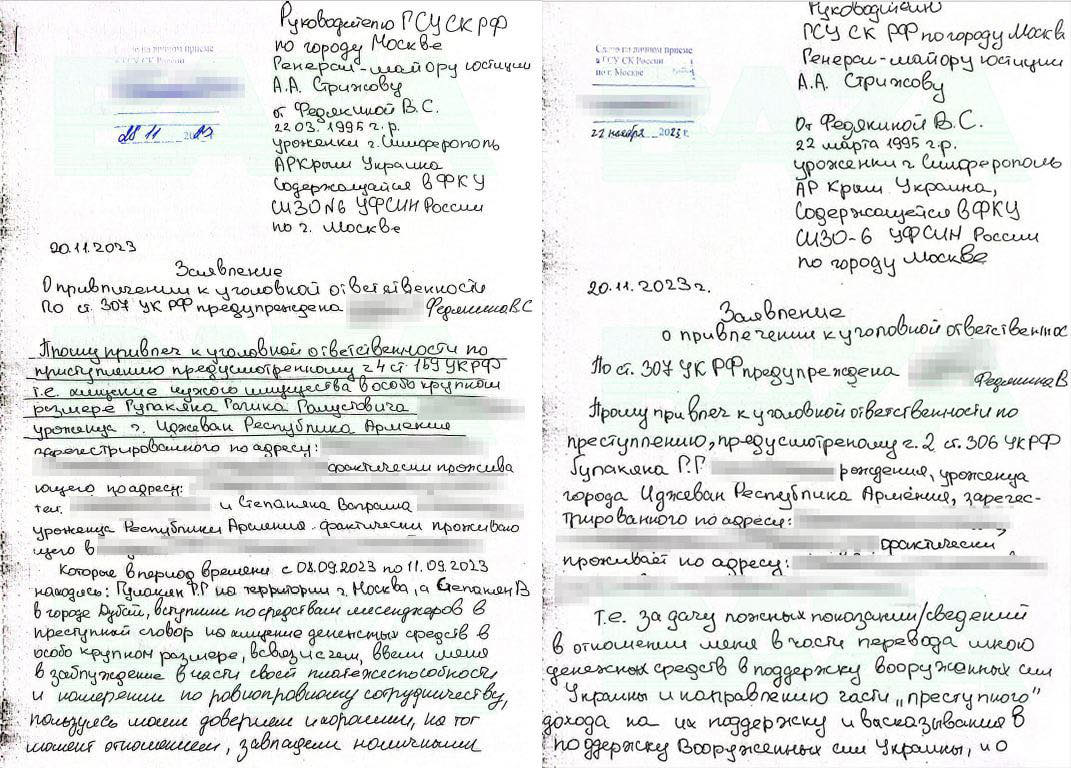 Руководителю ГСУ СК РФ
по городу Москве
Генерал-майору юстиции
А.А. Стрижову
от Федякиной В.С.
22.03.1995 г.р.
уроженки г. Симферополь
АР Крым Украина
Содержащайся в ФКУ
СИЗО №6 УФСИН России
по г. Москве
на личном приеме
в ГСУ СК России
28 11 2023
20.11.2023
Заявление
О привлечении к уголовной ответственности
По ст. 307 УК РФ предупреждена Федякина В.С
Прошу привлеч к уголовной ответственности по
приступлению предусмотренному ч 4 ст. 159 УК РФ
т.е. хищение чужого имущества в особо крупном
размере Гупакяна Рагика Ромустовича
уроженца г. Иджеван Республика Армения
зарегестрированного по адресу:
фактически прожива
ющего по адресу:
тел. и Степаняна Ваграма
уроженца Республики Армения фактически проживаю
щего в
Которые в период времени с 08.09.2023 по 11.09.2023
находясь: Гупакян Р.Г на территории г. Москва, а Степанян В
в городе Дубай, вступили по средствам месенджеров в
преступный сговор на хищение денежных средств в
особо крупном размере, всвязи с чем, ввели меня
в заблуждение в части своей платежеспособности
и намерении по равноправному сотрудничеству,
пользуясь моим доверием и хорошим, на тот
момент отношением, завладели наличными
Руководителю
ГСУ СК РФ по городу Москв
Генерал-майору юстиции
А.А. Стрижову
Сдано на личном приеме
в ГСУ СК России
по г. Москве
22 ноября 2023 г.
От Федякиной В.С.
22 марта 1995 г.р.
уроженки г Симферополь
АР Крым Украина,
Содержащейся в ФКУ
СИЗО-6 УФСИН России
по городу Москве
20.11.2023г.
Заявление
о привлечении к уголовной ответствennос
По ст. 307 УК РФ предупреждена
Федякина В
Прошу привлеч к уголовной ответственности по
преступлению, предусмотреному ч. 2 ст. 306 УК РФ
Гупакяна Р.Г рождения, уроженца
города Иджеван Республика Армения, зарегес-
трированного по адресу:
фактически,
проживает по адресу:
т.е. за дачу ложных показаний/сведений
в отношении меня в части перевода мною
денежных средств в поддержку вооруженных сил
Украины и направлению части „преступного"
дохода на их поддержку и высказывания в
поддержку Вооруженных сил Украины, и о